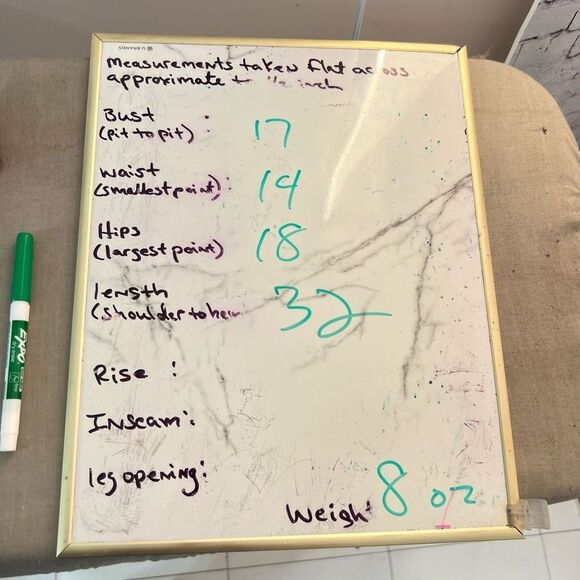 U BRANDS
Measurements taken flat across
approximate + 1/2 inch
Bust :
(pit to pit)
17
waist
(smallest point) :
14
Hips
(largest point)
18
length
(shoulder to hem
32
Rise :
Inseam :
leg opening :
Weight 8 oz
EXPO